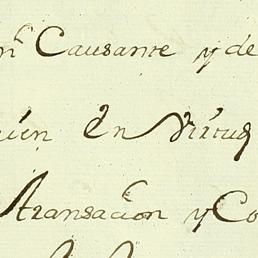 n. Causante y de
cien en Virtud
transacion y Co